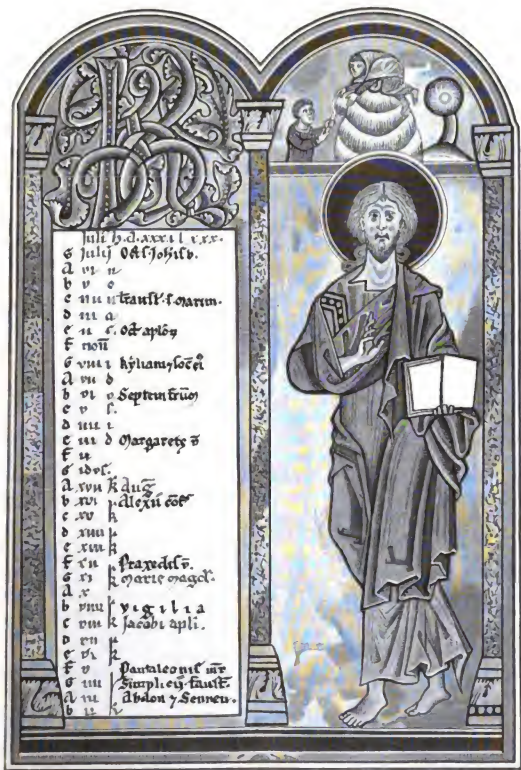 Julii h. d. xxxi l xxx.
G Julij Oct̄ S. Joħis b.
A vi n
b v o
c iiii n Tr̄anſl. S. Martin.
d iii a
e ii ſ. Oct̄ aplōꝝ
f non̄
G viii i kyliani ⁊ ſoc̄
A vii d
b vi v Septem fr̄um
c v ſ.
d iiii i
e iii d Margarete v̄
f ii
G idvſ.
A xvii k Auḡ
b xvi k Alexii cōf
c xv k
d xiiii k
e xiii k
f xii k Praxediſ v̄.
G xi k Marie Magd̄.
A x
b viiii k vigilia
c viii k Jacobi apli.
d vii k
e vi k
f v Pantaleoniſ m̄r
G iiii Simplicij. Fauſt̄.
A iii Abdon ⁊ Sennen.
b ii k